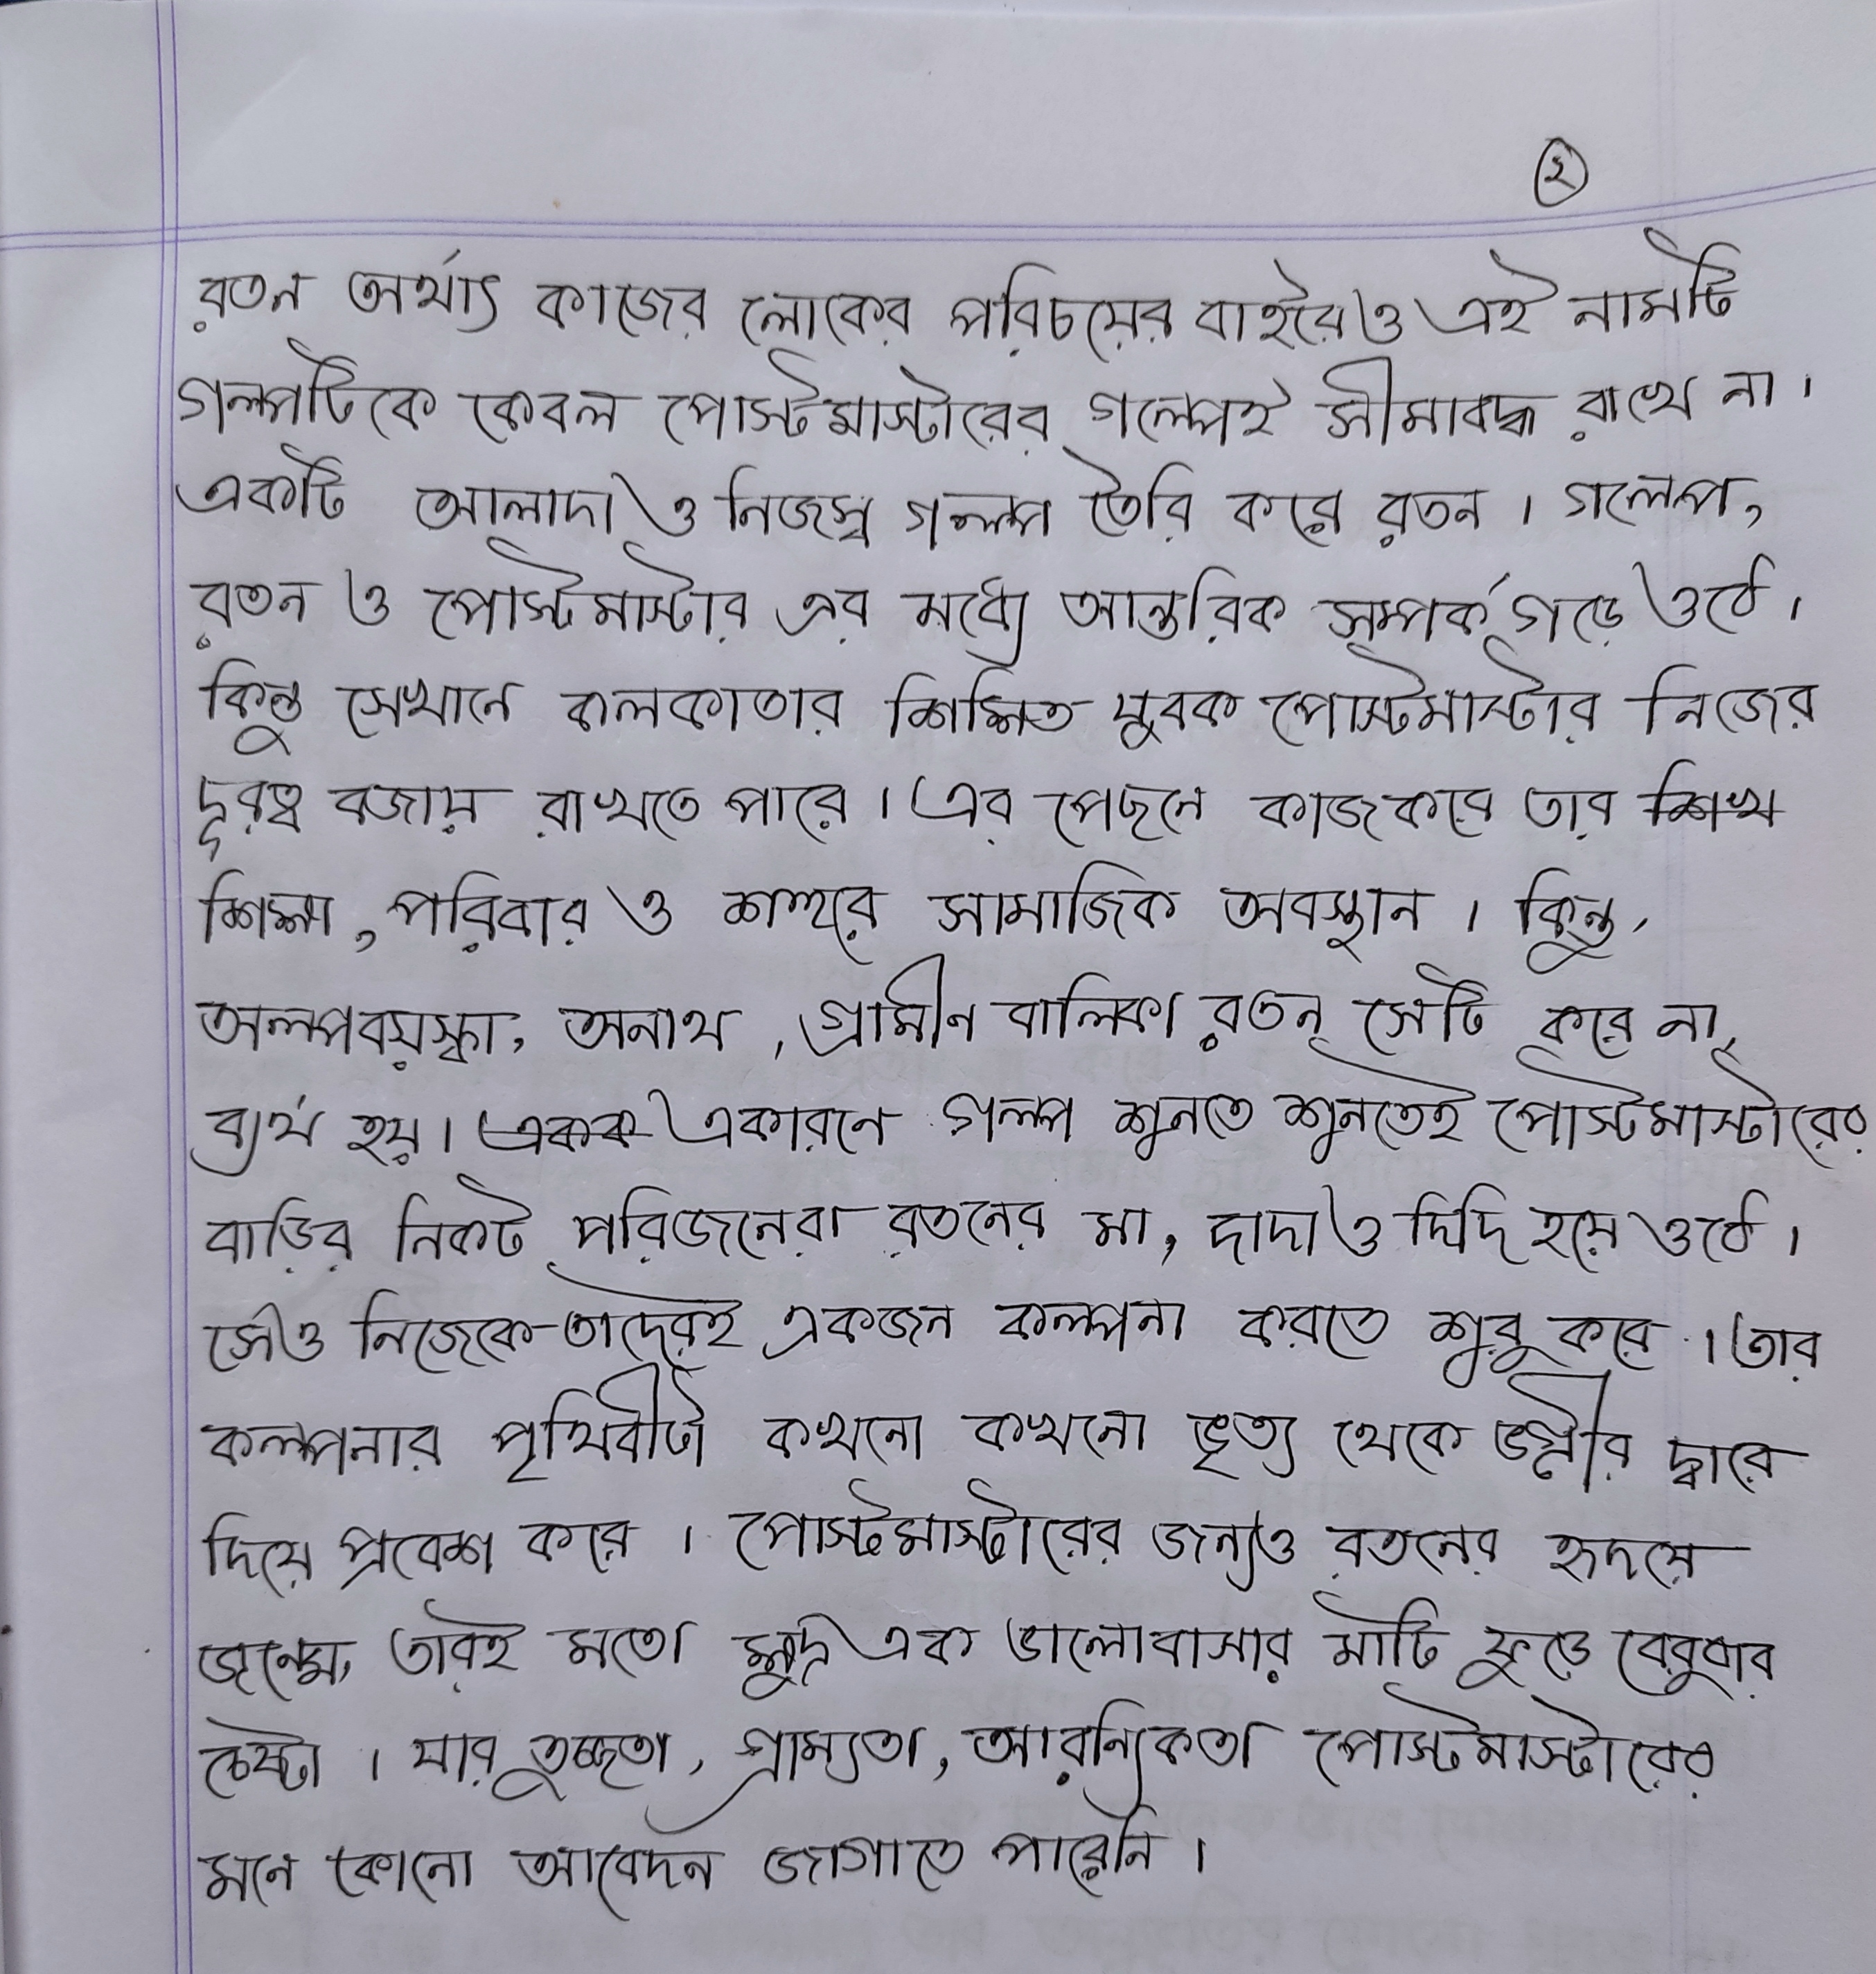 ২
রতন অর্থাৎ কাজের লোকের পরিচয়ের বাইরেও এই নামটি
গল্পটিকে কেবল পোস্টমাস্টারের গল্পেই সীমাবদ্ধ রাখে না।
একটি আলাদা ও নিজস্ব গল্প তৈরি করে রতন। গল্পে,
রতন ও পোস্টমাস্টার এর মধ্যে আন্তরিক সম্পর্ক গড়ে ওঠে।
কিন্তু সেখানে কলকাতার শিক্ষিত যুবক পোস্টমাস্টার নিজের
দূরত্ব বজায় রাখতে পারে। এর পেছনে কাজ করে তার শিখ
শিক্ষা, পরিবার ও শহুরে সামাজিক অবস্থান। কিন্তু,
অল্পবয়স্কা, অনাথ, গ্রামীন বালিকা রতন সেটি করে না,
ব্যর্থ হয়। একক একারনে গল্প শুনতে শুনতেই পোস্টমাস্টারের
বাড়ির নিকট পরিজনেরা রতনের মা, দাদা ও দিদি হয়ে ওঠে।
সেও নিজেকে তাদেরই একজন কল্পনা করতে শুরু করে। তার
কল্পনার পৃথিবীটা কখনো কখনো ভৃত্য থেকে ভগ্নীর দ্বারে
দিয়ে প্রবেশ করে। পোস্টমাস্টারের জন্যও রতনের হৃদয়ে
জন্মে, তারই মতো ক্ষুদ্র এক ভালোবাসার মাটি ফুড়ে বেরুবার
চেষ্টা। যার তুচ্ছতা, গ্রাম্যতা, আরন্যিকতা পোস্টমাস্টারের
মনে কোনো আবেদন জাগাতে পারেনি।